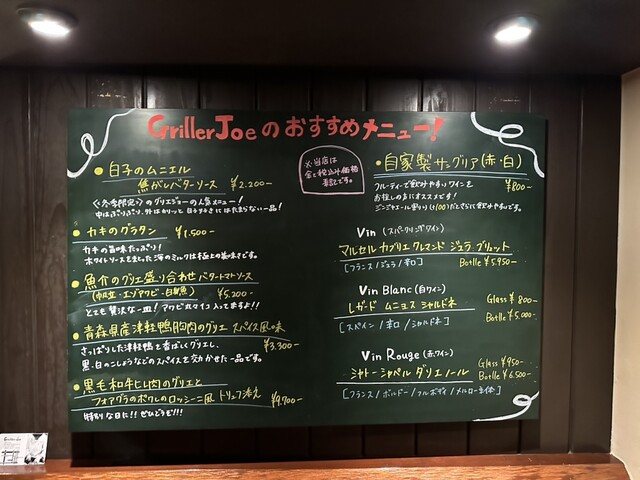 GrillerJoeのおすすめメニュー!
※当店は
全て税込み価格
表記です。
● 白子のムニエル
焦がしバターソース ¥2.200-
《冬季限定》のグリエジョーの人気メニュー!
中はぷりぷり、外はカリッと白子好きにはたまらない一品!
● カキのグラタン ¥1.500-
カキの旨味たっぷり!
ホワイトソースをまとった海のミルクは極上の美味さです。
● 魚介のグリエ盛り合わせバタートマトソース
¥5.200-
とても贅沢な一皿!アワビ丸々1コ入ってますよ!!
● 青森県産津軽鴨胸肉のグリエ スパイス風味
¥3.300-
さっぱりした津軽鴨を香ばしくグリエし、
黒、白のこしょうなどのスパイスを効かせた一品です。
● 黒毛和牛ヒレ肉のグリエと
フォアグラのポワレのロッシーニ風 トリュフ添え ¥9.700-
特別な日に!!ぜひどうぞ!!!
● 自家製サングリア(赤・白)
¥800-
フルーティーで飲みやすいワインを
お探しの方にオススメです!
ジンジャエール割り(+100)だとさらに飲みやすいです。
Vin (スパークリングワイン)
マルセル カブリエ クレマンド ジュラ ブリュット
[フランス/ジュラ/辛口] Botlle ¥5.950-
Vin Blanc (白ワイン)
レガード ムニョス シャルドネ
Glass ¥800-
Botlle ¥5.000-
[スペイン/辛口/シャルドネ]
Vin Rouge (赤ワイン)
シャトー シャペル ダリエノール
Glass ¥950-
Botlle ¥6.500-
[フランス/ボルドー/フルボディ/メルロー主体]
Griller Joe